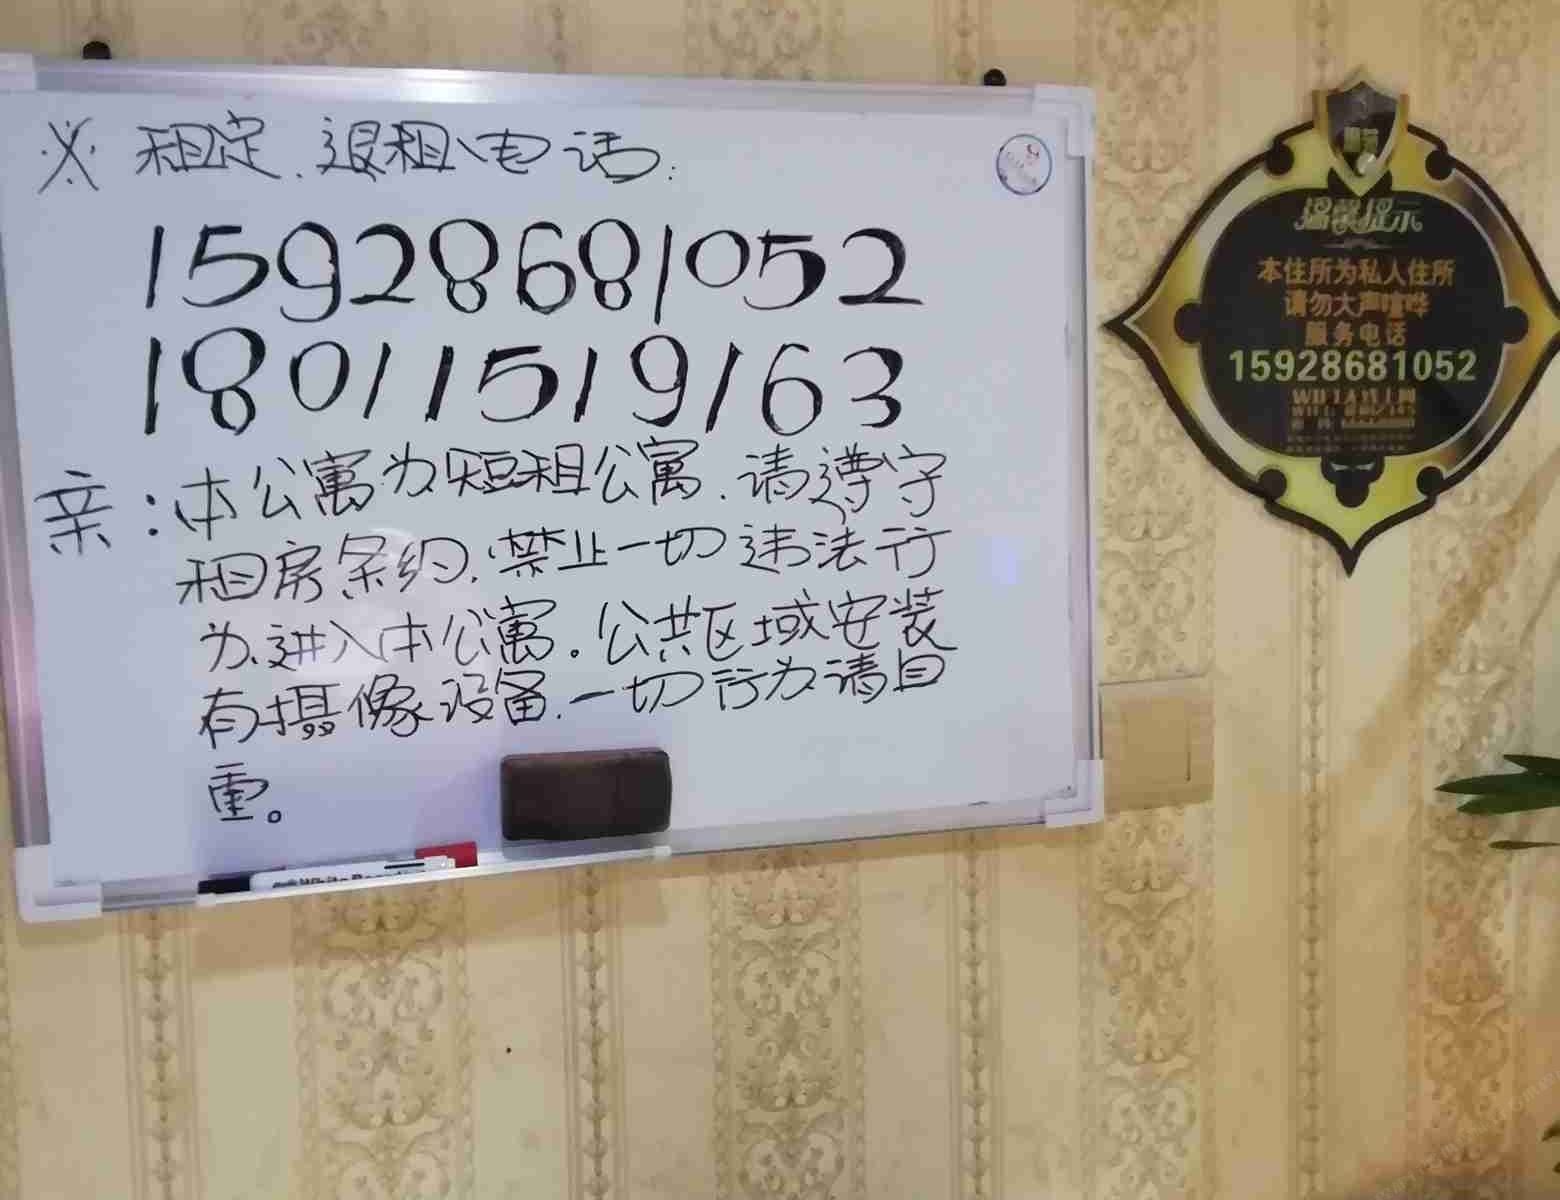 ※ 租定.退租电话:
15928681052
18011519163
亲:本公寓为短租公寓.请遵守
租房条约.禁止一切违法行
为进入本公寓。公共区域安装
有摄像设备.一切行为请自
重。
温馨提示
本住所为私人住所
请勿大声喧哗
服务电话
15928681052